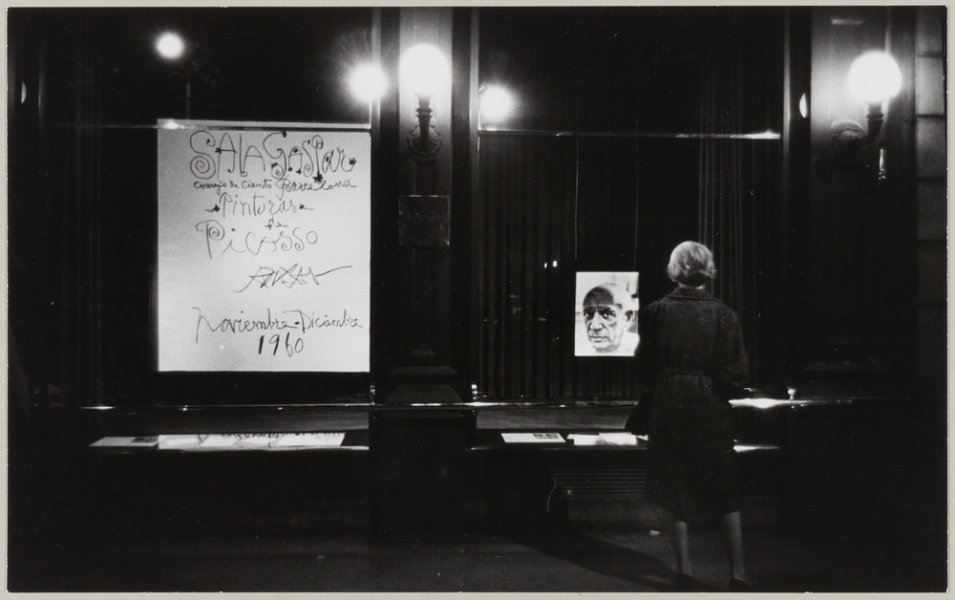 SALA GASPAR
Consejo de Ciento Barcelona
Pinturas
de
Picasso
Noviembre-Diciembre
1960